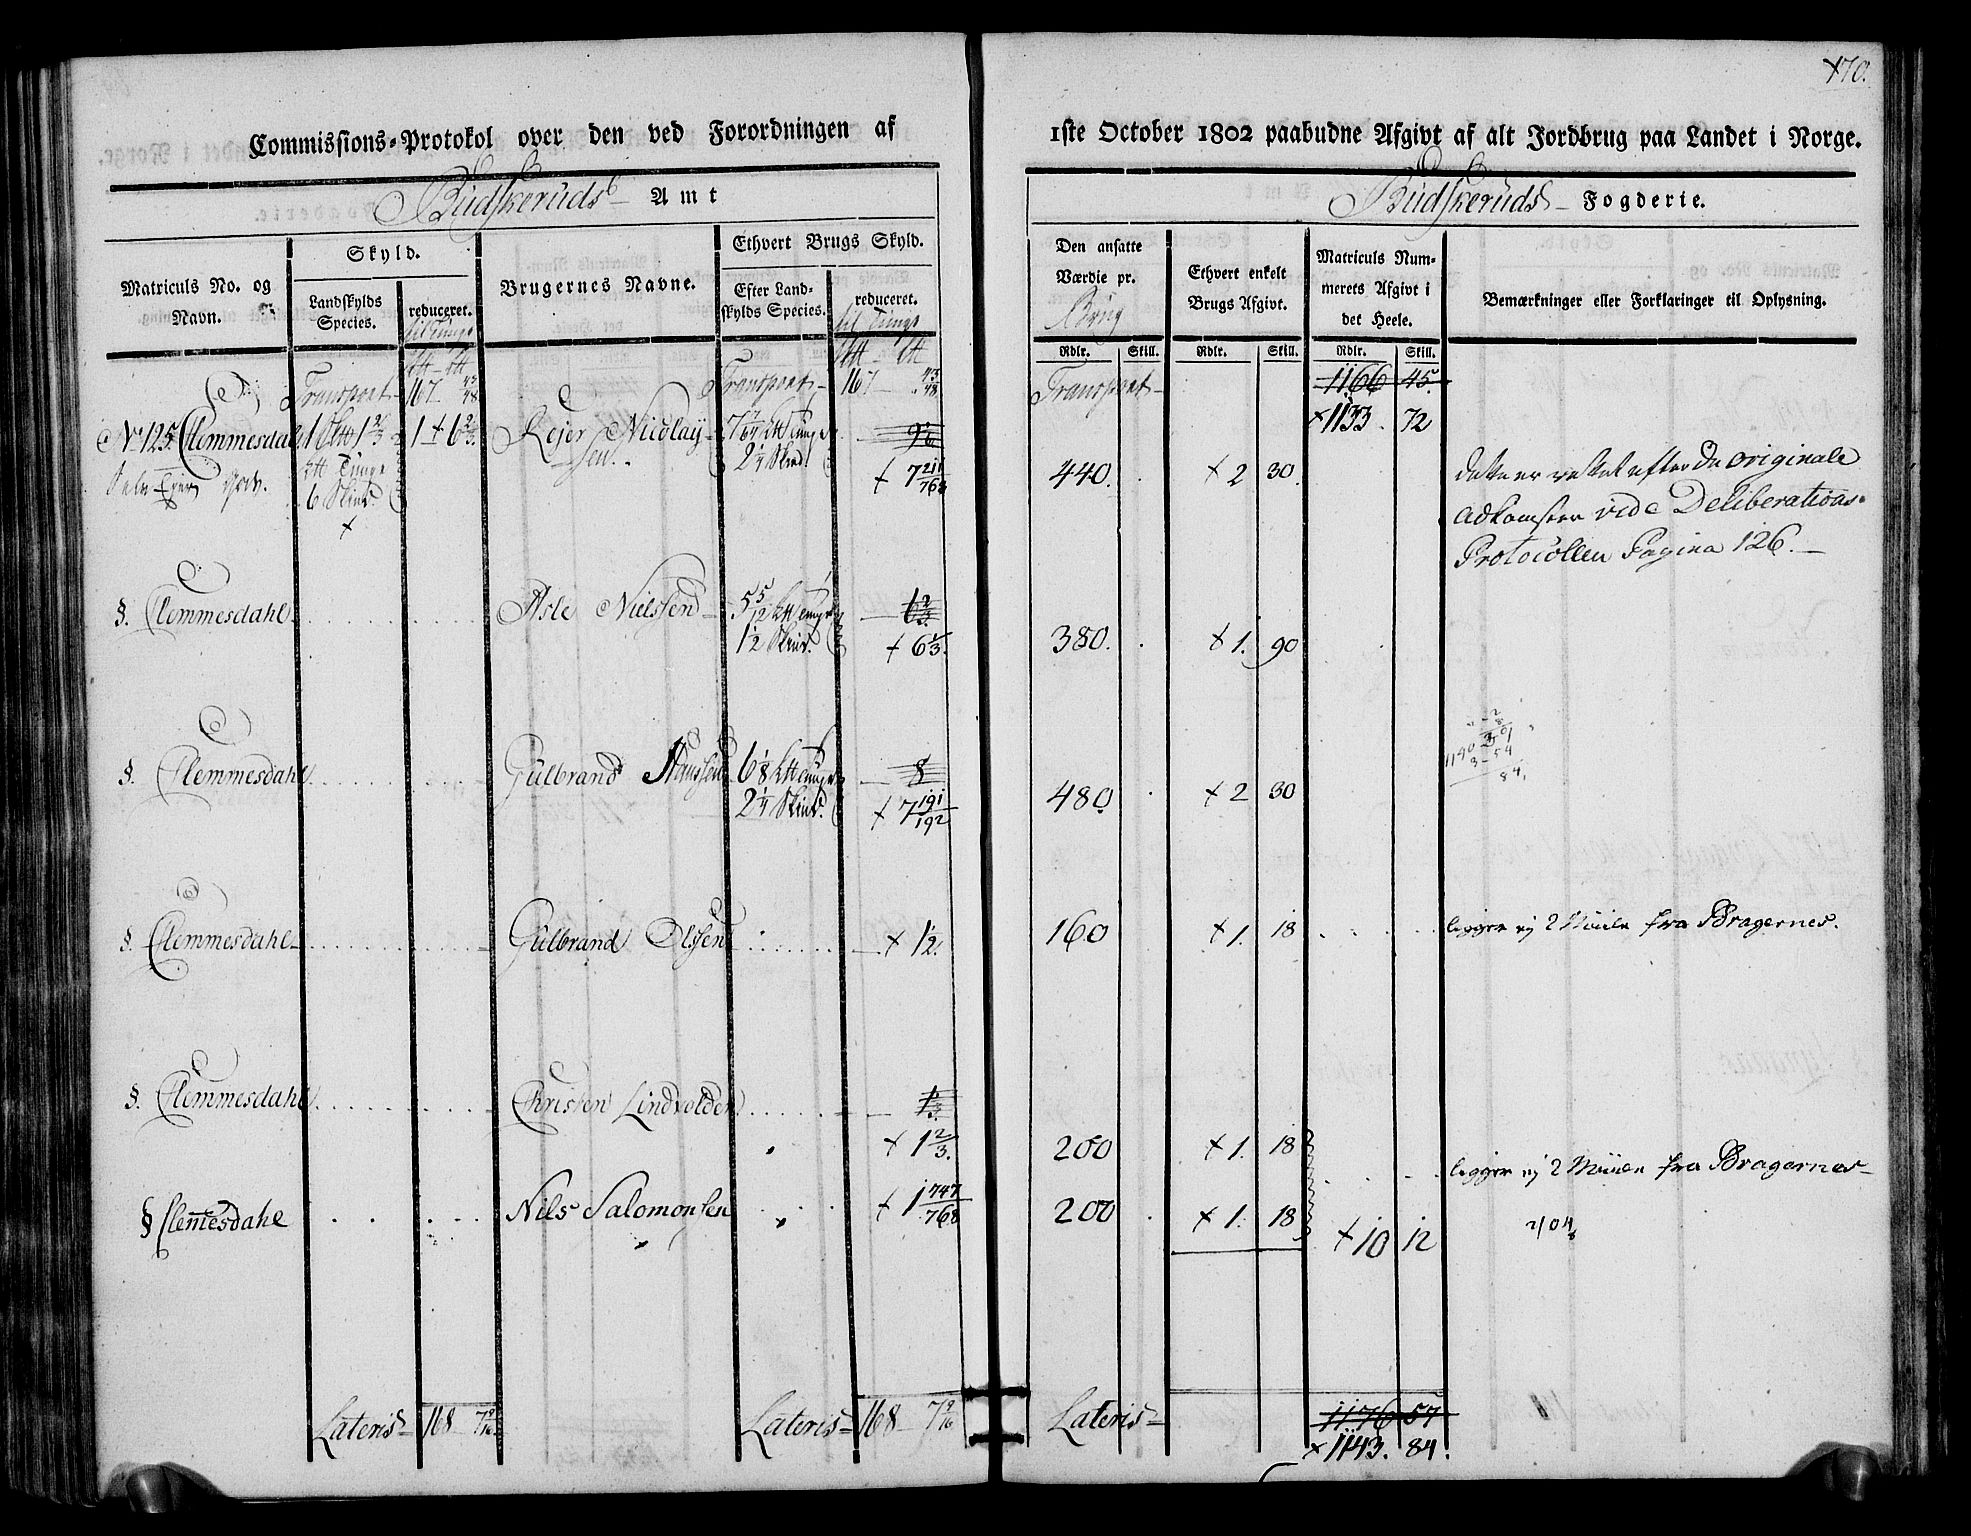 170.
Commissions-Protokol over den ved Forordningen af
1ste October 1802 paabudne Afgivt af alt Jordbrug paa Landet i Norge.
Budskeruds Amt
Budskeruds Fogderie.
Matriculs No. og Navn.
Skyld.
Landskylds Species.
reduceret. til Tunge
Brugernes Navne.
Ethvert Brugs Skyld.
Efter Landskylds Species.
reduceret. til Tunge
Den ansatte Værdie pr. Brug
Ethvert enkelt Brugs Afgivt.
Matriculs Nummerets Afgivt i det Heele.
Bemærkninger eller Forklaringer til Oplysning.
Rdlr. Skill. Rdlr. Skill. Rdlr. Skill.
Transport 167 43/48 Transport 167 43/48 Transport 1166 45
+ 1133 72
No 125 Clemmesdal Rejer Nicolaysen 9 1/6
+ 7 211/768 440 + 2 30
Dette er rettet efter De originale
Adkomster vide Deliberations
Protocollen Pagina 126.
§. Clemmesdahl Asle Nielssen 5 5/12 6 2/3
1 1/2 Skind + 6 1/3 380. + 1. 90
§. Clemmesdahl Gulbrand Hanssen 6 1/8 8
2 1/4 Skind + 7 191/192 480 + 2 30
§. Clemmesdahl Gulbrand Olssen + 1/2. 160 + 1. 18 ligger ej 2 Miile fra Bragernes.
§. Clemmesdahl Christen Lindvolden
+ 1 2/3. 200 + 1. 18 ligger ej 2 Miile fra Bragernes
§ Clemesdahl Nils Salomonsen + 1 747/768 200 + 1. 18
+ 10 12
Lateris 168 7 9/16 Lateris 168 7 9/16 Lateris 1176 57
+ 1143. 84.